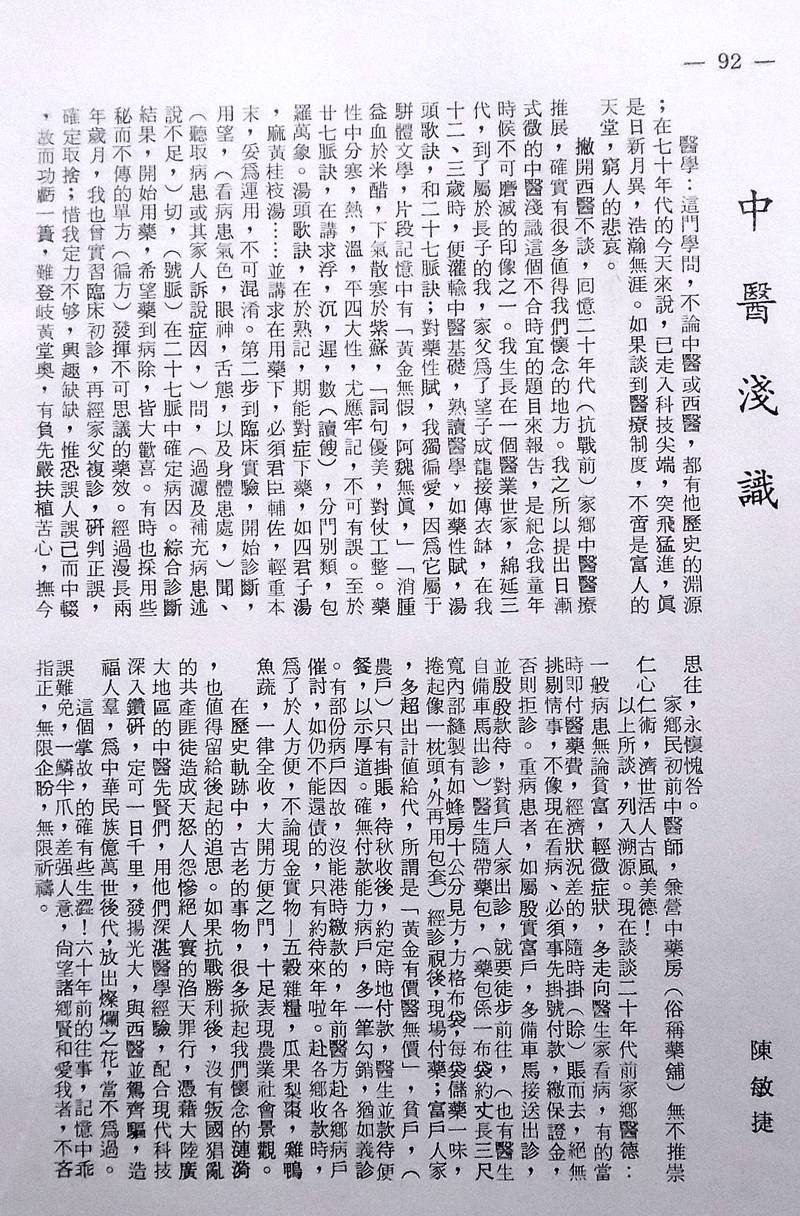 — 92 —
中醫淺識
陳敏捷
醫學：這門學問，不論中醫或西醫，都有他歷史的淵源
；在七十年代的今天來說，已走入科技尖端，突飛猛進，眞
是日新月異，浩瀚無涯。如果談到醫療制度，不啻是富人的
天堂，窮人的悲哀。
撇開西醫不談，回憶二十年代（抗戰前）家鄉中醫醫療
推展，確實有很多値得我們懷念的地方。我之所以提出日漸
式微的中醫淺識這個不合時宜的題目來報告，是紀念我童年
時候不可磨滅的印像之一。我生長在一個醫業世家，綿延三
代，到了屬於長子的我，家父爲了望子成龍接傳衣缽，在我
十二、三歲時，便灌輸中醫基礎，熟讀醫學、如藥性賦，湯
頭歌訣，和二十七脈訣；對藥性賦，我獨偏愛，因爲它屬于
駢體文學，片段記憶中有「黃金無假，阿魏無眞，」「消腫
益血於米醋，下氣散寒於紫蘇，「詞句優美，對仗工整。藥
性中分寒，熱，溫，平四大性，尤應牢記，不可有誤。至於
廿七脈訣，在講求浮，沉，遲，數（讀餿），分門別類，包
羅萬象。湯頭歌訣，在於熟記，期能對症下藥，如四君子湯
，麻黃桂枝湯……並講求在用藥下，必須君臣輔佐，輕重本
末，妥爲運用，不可混淆。第二步到臨床實驗，開始診斷，
用望，（看病患氣色，眼神，舌態，以及身體患處，）聞、
（聽取病患或其家人訴說症因，）問，（過濾及補充病患述
說不足，）切，（號脈）在二十七脈中確定病因。綜合診斷
結果，開始用藥，希望藥到病除，皆大歡喜。有時也採用些
秘而不傳的單方（偏方）發揮不可思議的藥效。經過漫長兩
年歲月，我也曾實習臨床初診，再經家父複診，硏判正誤，
確定取捨；惜我定力不够，興趣缺缺，惟恐誤人誤己而中輟
，故而功虧一簣，難登岐黃堂奧，有負先嚴扶植苦心，撫今
思往，永懷愧咎。
家鄉民初前中醫師，兼營中藥房（俗稱藥舖）無不推崇
仁心仁術，濟世活人古風美德！
以上所談，列入溯源。現在談談二十年代前家鄉醫德：
一般病患無論貧富，輕微症狀，多走向醫生家看病，有的當
時即付醫藥費，經濟狀況差的，隨時掛（賒）賬而去，絕無
挑剔情事，不像現在看病、必須事先掛號付款，繳保證金，
否則拒診。重病患者，如屬殷實富戶，多備車馬接送出診，
並殷殷款待，對貧戶人家出診，就要徒步前往，（也有醫生
自備車馬出診）醫生隨帶藥包，（藥包係一布袋約丈長三尺
寬內部縫製有如蜂房十公分見方，方格布袋，每袋儲藥一味，
捲起像一枕頭，外再用包套）經診視後，現場付藥；富戶人家
，多超出計値給代，所謂是「黃金有價醫無價」，貧戶，（
農戶）只有掛賬，待秋收後，約定時地付款，醫生並款待便
餐，以示厚道。確無付款能力病戶，多一筆勾銷，猶如義診
。有部份病戶因故，沒能港時繳款的，年前醫方赴各鄉病戶
催討，如仍不能還債的，只有約待來年啦。赴各鄉收款時，
爲了於人方便，不論現金實物—五穀雜糧，瓜果梨棗，雞鴨
魚蔬，一律全收，大開方便之門，十足表現農業社會景觀。
在歷史軌跡中，古老的事物，很多掀起我們懷念的漣漪
，也値得留給後起的追思。如果抗戰勝利後，沒有叛國猖亂
的共產匪徒造成天怒人怨慘絕人寰的滔天罪行，憑藉大陸廣
大地區的中醫先賢們，用他們深湛醫學經驗，配合現代科技
深入鑽硏，定可一日千里，發揚光大，與西醫並駕齊驅，造
福人羣，爲中華民族億萬世後代，放出燦爛之花，當不爲過。
這個掌故，的確有些生澀！六十年前的往事，記憶中乖
誤難免，一鱗半爪，差强人意，尙望諸鄉賢和愛我者，不吝
指正，無限企盼，無限祈禱。